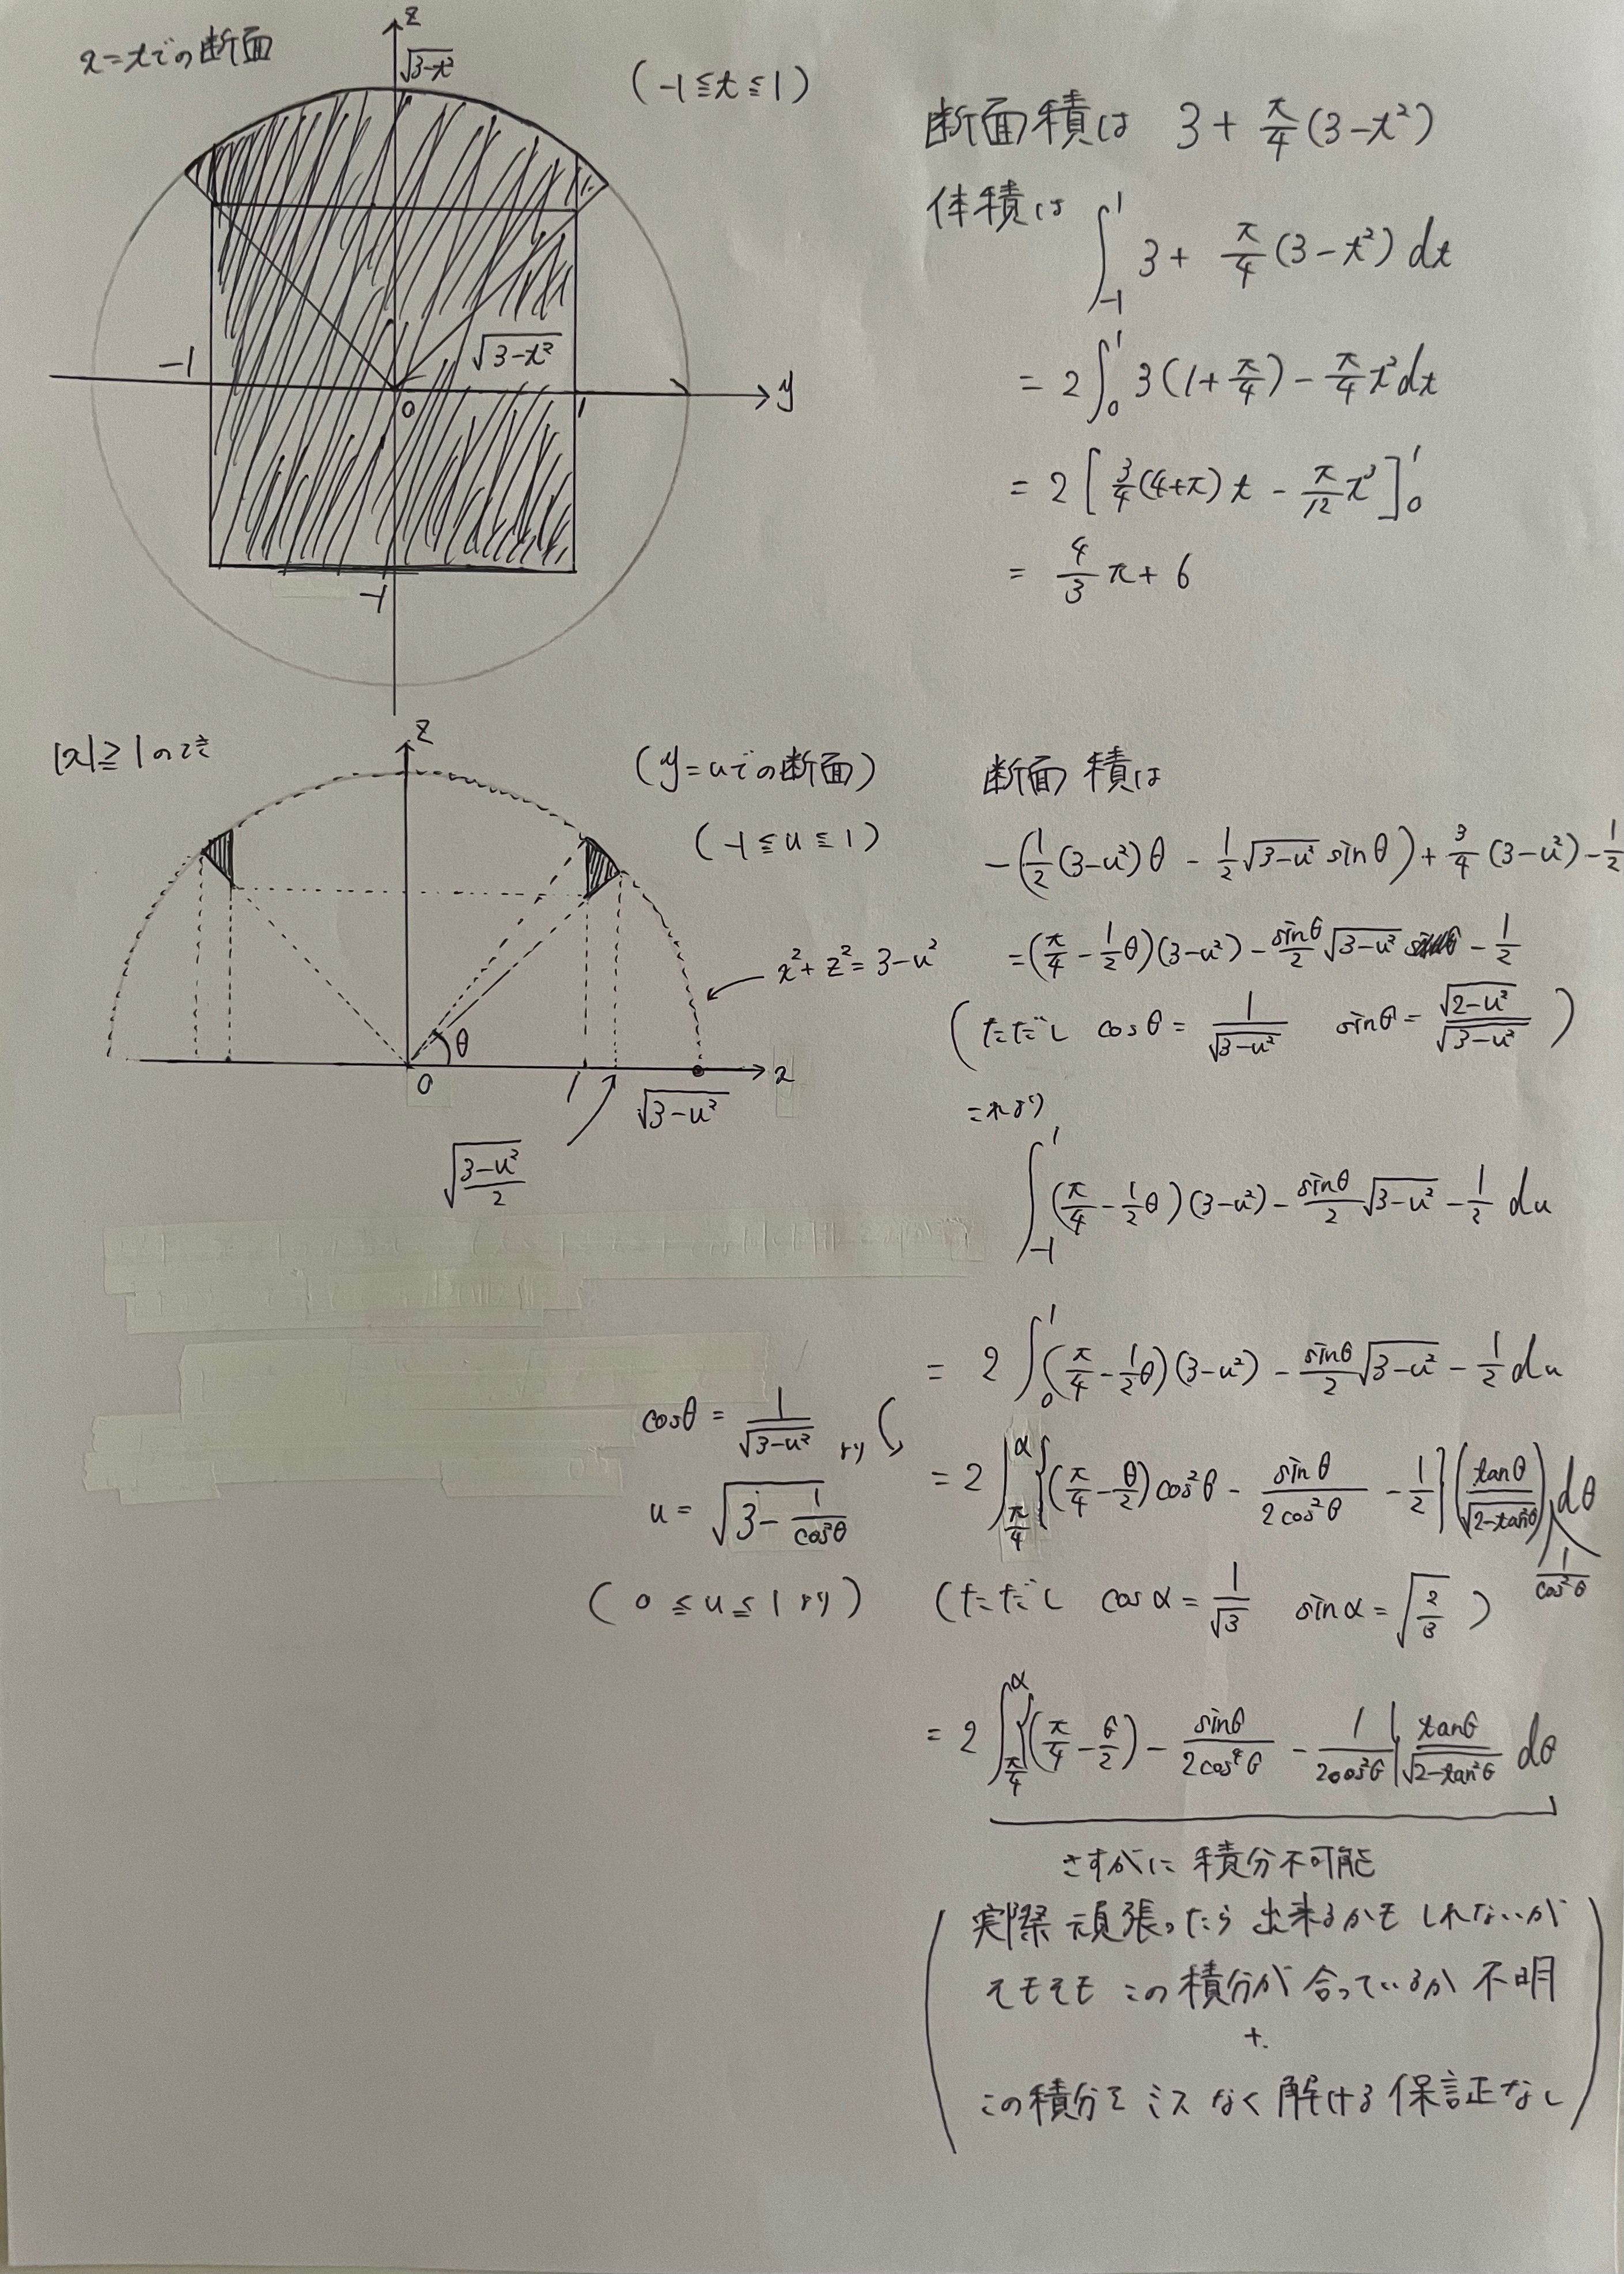 x=tでの断面
z
√(3-t²)
(-1≦t≦1)
-1
√(3-t²)
0
1
y
-1
断面積は 3+π/4(3-t²)
体積は ∫_{-1}^{1} 3+π/4(3-t²)dt
=2∫_0^1 3(1+π/4)-π/4 t²dt
=2[3/4(4+π)t-π/12 t³]_0^1
=4/3π+6
|x|≧1のとき
z
(y=uでの断面)
(-1≦u≦1)
x²+z²=3-u²
θ
0
1
x
√(3-u²)
√((3-u²)/2)
断面積は
-(1/2(3-u²)θ-1/2√(3-u²)sinθ)+3/4(3-u²)-1/2
=(π/4-1/2θ)(3-u²)-sinθ/2√(3-u²)-1/2
(ただし cosθ=1/√(3-u²) sinθ=√(2-u²)/√(3-u²))
これより
∫_{-1}^{1}(π/4-1/2θ)(3-u²)-sinθ/2√(3-u²)-1/2 du
=2∫_0^1(π/4-1/2θ)(3-u²)-sinθ/2√(3-u²)-1/2 du
cosθ=1/√(3-u²) より
u=√(3-1/cos²θ)
(0≦u≦1より)
=2∫_{π/4}^{α}{(π/4-θ/2)cos²θ-sinθ/(2cos²θ)-1/2}(tanθ/√(2-tan²θ))dθ
1/cos²θ
(ただし cosα=1/√3 sinα=√(2/3))
=2∫_{π/4}^{α}{(π/4-θ/2)-sinθ/(2cos⁴θ)-1/(2cos²θ)}tanθ/√(2-tan²θ) dθ
さすがに積分不可能
(実際頑張ったら出来るかもしれないが
そもそもこの積分が合っているか不明
+
この積分をミスなく解ける保証なし)